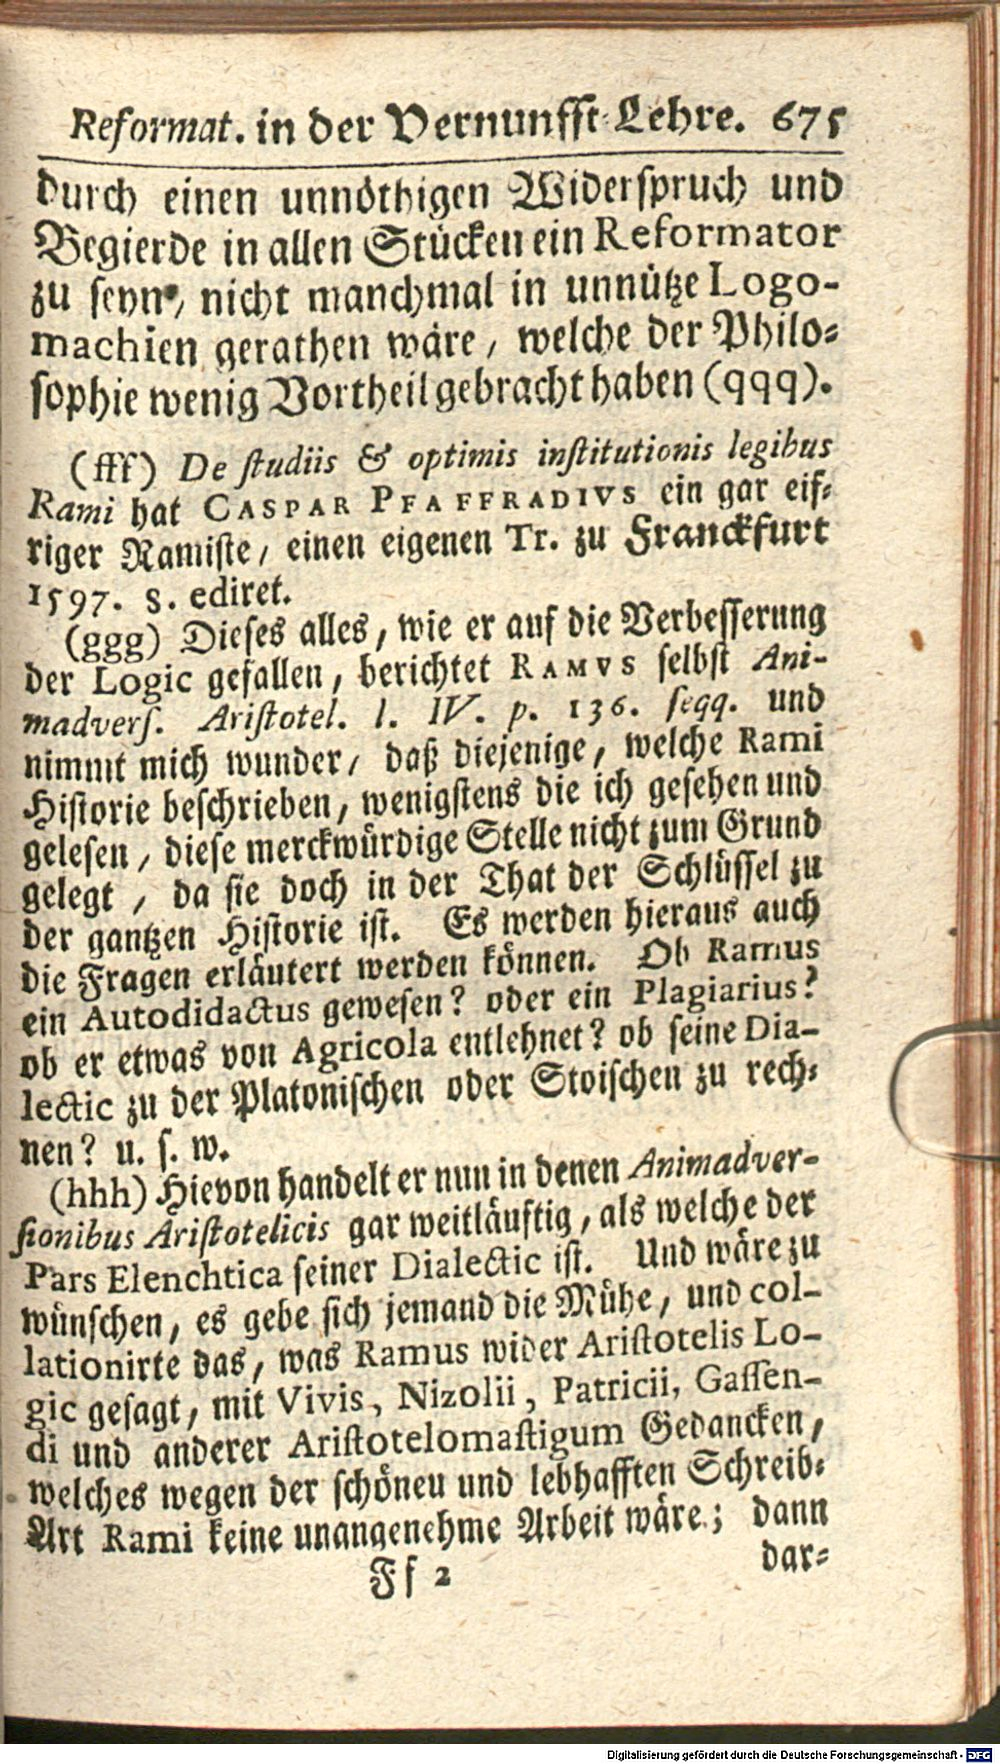 Reformat. in der Vernunfft-Lehre. 675
durch einen unnöthigen Widerspruch und
Begierde in allen Stücken ein Reformator
zu seyn, nicht manchmal in unnütze Logo-
machien gerathen wäre, welche der Philo-
sophie wenig Vortheil gebracht haben (qqq).
(fff) De studiis & optimis institutionis legibus
Rami hat CASPAR PFAFFRADIVS ein gar eif-
riger Ramiste, einen eigenen Tr. zu Franckfurt
1597. 8. ediret.
(ggg) Dieses alles, wie er auf die Verbesserung
der Logic gefallen, berichtet RAMVS selbst Ani-
madvers. Aristotel. l. IV. p. 136. seqq. und
nimmt mich wunder, daß diejenige, welche Rami
Historie beschrieben, wenigstens die ich gesehen und
gelesen, diese merckwürdige Stelle nicht zum Grund
gelegt, da sie doch in der That der Schlüssel zu
der gantzen Historie ist. Es werden hieraus auch
die Fragen erläutert werden können. Ob Ramus
ein Autodidactus gewesen? oder ein Plagiarius?
ob er etwas von Agricola entlehnet? ob seine Dia-
lectic zu der Platonischen oder Stoischen zu rech-
nen? u. s. w.
(hhh) Hievon handelt er nun in denen Animadver-
sionibus Aristotelicis gar weitläuftig, als welche der
Pars Elenchtica seiner Dialectic ist. Und wäre zu
wünschen, es gebe sich jemand die Mühe, und col-
lationirte das, was Ramus wider Aristotelis Lo-
gic gesagt, mit Vivis, Nizolii, Patricii, Gassen-
di und anderer Aristotelomastigum Gedancken,
welches wegen der schöneu und lebhafften Schreib-
Art Rami keine unangenehme Arbeit wäre; dann
Ff 2 dar-
Digitalisierung gefördert durch die Deutsche Forschungsgemeinschaft - DFG